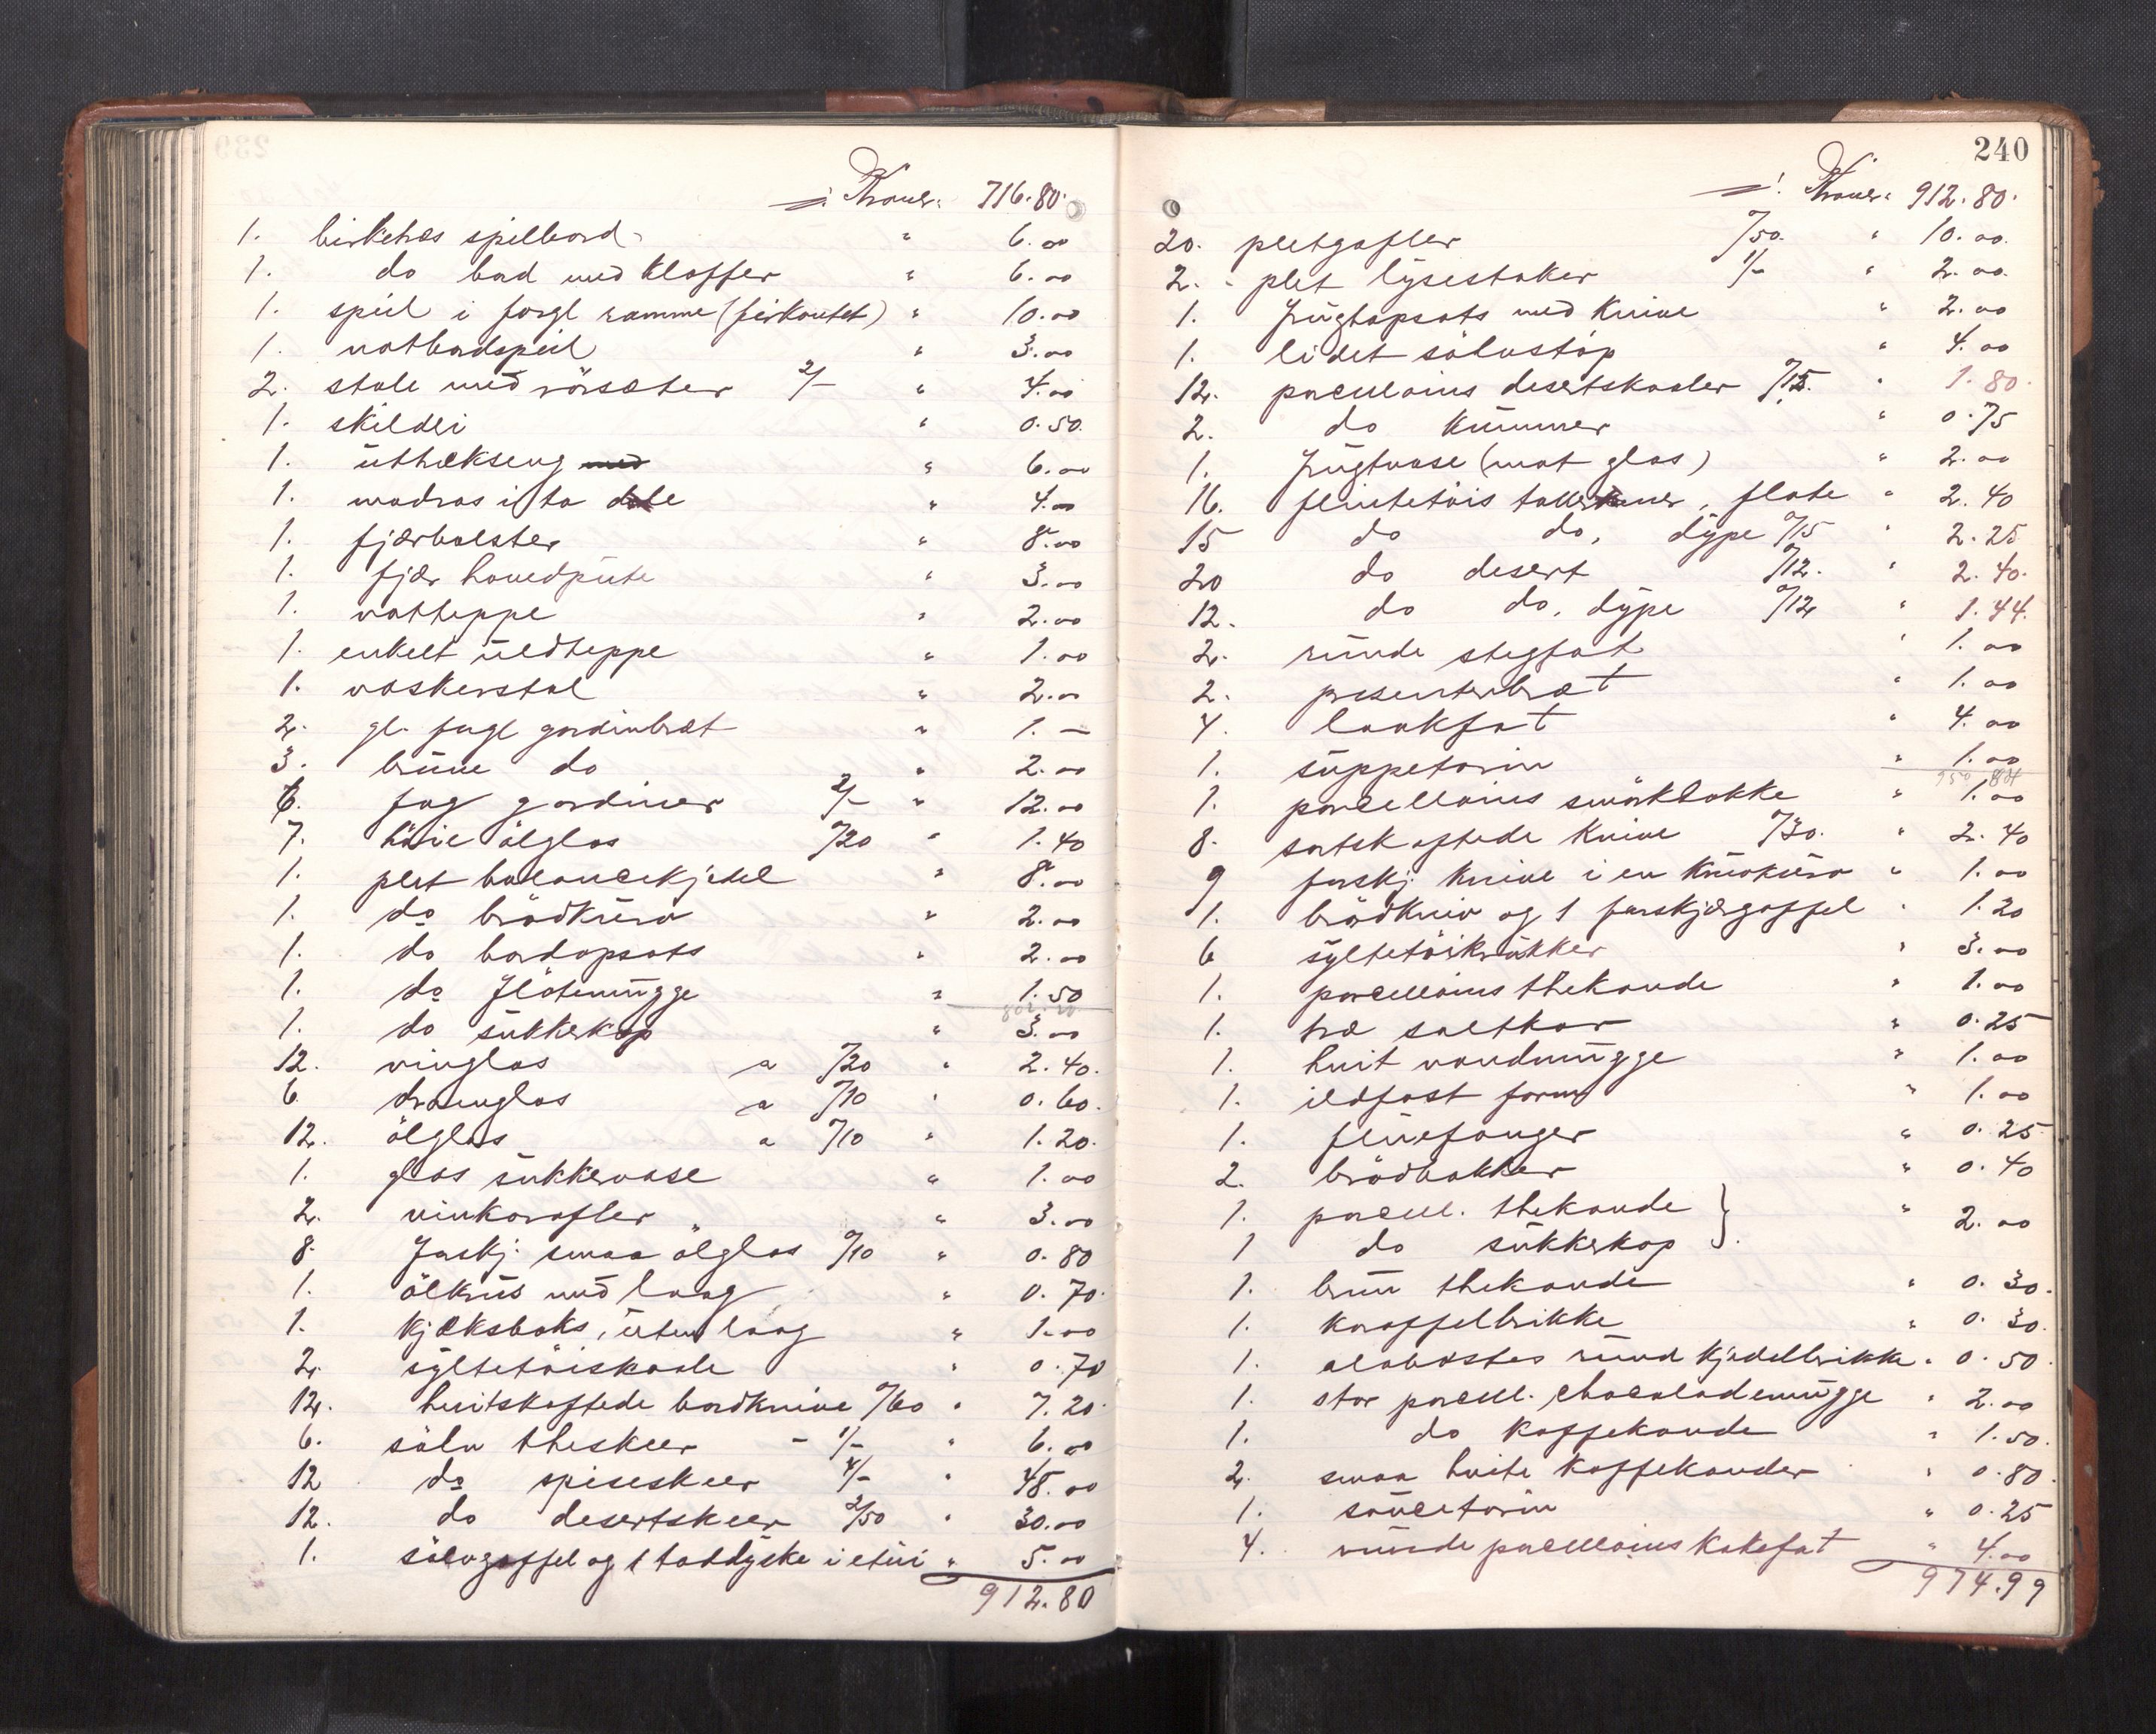 Kroner 716.80.
1. birketræs spilbord " 6.00
1. do bord med klaffer " 6.00
1. speil i forgl ramme (firkantet) " 10.00
1. natbordspeil " 3.00
2. stole med rörsæter 2/- " 4.00
1. skilderi " 0.50.
1. üttrækseng med " 6.00
1. madras i to dele " 4.00
1. fjærbolster " 8.00
1. fjær hovedpüte " 3.00
1. vatteppe " 2.00
1. enkelt üldteppe " 1.00
1. vaskerstol " 2.00
2. gl. forgl gardinbræt " 1.-
3. brüne do " 2.00
6. fag gardiner 2/- " 12.00
7. höie ölglas 0/20 " 1.40
1. plet balancekjedel " 8.00
1. do brödkürv " 2.00
1. do bordopsats " 2.00
1. do flötemügge " 1.50
1. do sükkerkop " 3.00
12. vinglas a 0/20 " 2.40.
6 dramglas a 0/10 " 0.60.
12. ölglas a 0/10 " 1.20.
1. glas sükkervase " 1.00
2. vinkarafler " 3.00
8. forskj. smaa ölglas 0/10 " 0.80
1. ölkrüs med laag " 0.70.
1. kjæksboks, üten laag " 1.00
2. syltetöiskaale " 0.70
12. hvitskaftede bordknive 0/60 " 7.20.
6. sölv theskeer - 1/- " 6.00
12 do spiseskeer 4/- " 48.00
12. do desertskeer 2/50 " 30.00
1. sölvgaffel og 1 toddyske i etüi " 5.00
912.80
240
Kroner 912.80.
20. pletgafler 0/50. " 10.00.
2. plet lysestaker 1/- " 2.00.
1. frügtopsats med knive " 2.00
1. lidet sölvstöp " 4.00
12. porcellains desertskaaler 0/15. " 1.80.
2. do kummer " 0.75
1. frügtvase (mat glas) " 2.00
16. flintetöis tallerkener, flate " 2.40
15 do do, dype 0/15 " 2.25
20 do desert 0/12. " 2.40.
12. do do, dype 0/12 " 1.44.
2. runde stegfat " 1.00
2. presenterbræt " 1.00
4. laakfat " 4.00
1. süppeterin " 1.00
1. porcellains smörklokke " 1.00
8. sortskaftede knive 0/30. " 2.40
9 forskj. knive i en knivkürv " 1.00
1. brödkniv og 1 forskjærgaffel " 1.20
6 syltetöikrükker " 3.00
1. porcellains thekande " 1.00
1. træ saltkar " 0.25
1. hvit vandmügge " 1.00
1. ildfast form " 1.00
1. flüefanger " 0.25
2. brödbakker " 0.40
1. porcell. thekande } " 2.00
1 do sükkerkop
1. brün thekande " 0.30.
1. karaffelbrikke " 0.30.
1. alabastes ründ kjedelbrikke " 0.50.
1. stor porcell. chocolademügge " 2.00
1. do kaffekande " 1.50.
2. smaa hvite kaffekander " 0.80.
1. saüceterin " 0.25
4. runde porcellains kakefat " 4.00
974.99